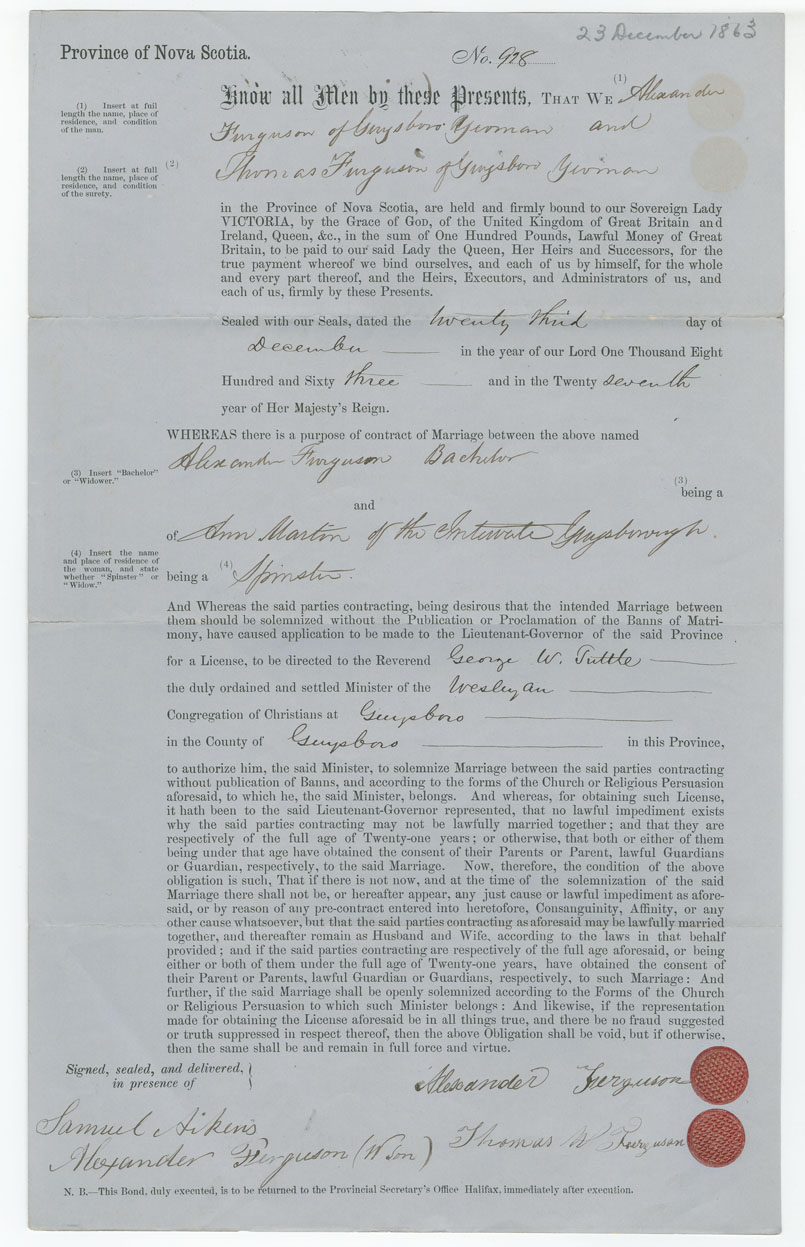 23 December 1863
Province of Nova Scotia.
No. 928
Know all Men by these Presents, THAT WE (1) Alexander
(1) Insert at full
length the name, place of
residence, and condition
of the man.
Ferguson of Guysboro Yeoman and
(2) Insert at full
length the name, place of
residence, and condition
of the surety.
(2) Thomas Ferguson of Guysboro Yeoman
in the Province of Nova Scotia, are held and firmly bound to our Sovereign Lady
VICTORIA, by the Grace of GOD, of the United Kingdom of Great Britain and
Ireland, Queen, &c., in the sum of One Hundred Pounds, Lawful Money of Great
Britain, to be paid to our said Lady the Queen, Her Heirs and Successors, for the
true payment whereof we bind ourselves, and each of us by himself, for the whole
and every part thereof, and the Heirs, Executors, and Administrators of us, and
each of us, firmly by these Presents.
Sealed with our Seals, dated the twenty third day of
December in the year of our Lord One Thousand Eight
Hundred and Sixty three and in the Twenty seventh
year of Her Majesty's Reign.
WHEREAS there is a purpose of contract of Marriage between the above named
Alexander Ferguson Bachelor
(3) Insert "Bachelor"
or "Widower."
(3)
being a
and
of Ann Marton of the Guysborough.
(4) Insert the name
and place of residence of
the woman, and state
whether "Spinster" or
"Widow."
being a (4) Spinster.
And Whereas the said parties contracting, being desirous that the intended Marriage between
them should be solemnized without the Publication or Proclamation of the Banns of Matri-
mony, have caused application to be made to the Lieutenant-Governor of the said Province
for a License, to be directed to the Reverend George W. Tuttle
the duly ordained and settled Minister of the Wesleyan
Congregation of Christians at Guysboro
in the County of Guysboro in this Province,
to authorize him, the said Minister, to solemnize Marriage between the said parties contracting
without publication of Banns, and according to the forms of the Church or Religious Persuasion
aforesaid, to which he, the said Minister, belongs. And whereas, for obtaining such License,
it hath been to the said Lieutenant-Governor represented, that no lawful impediment exists
why the said parties contracting may not be lawfully married together; and that they are
respectively of the full age of Twenty-one years; or otherwise, that both or either of them
being under that age have obtained the consent of their Parents or Parent, lawful Guardians
or Guardian, respectively, to the said Marriage. Now, therefore, the condition of the above
obligation is such, That if there is not now, and at the time of the solemnization of the said
Marriage there shall not be, or hereafter appear, any just cause or lawful impediment as afore-
said, or by reason of any pre-contract entered into heretofore, Consanguinity, Affinity, or any
other cause whatsoever, but that the said parties contracting as aforesaid may be lawfully married
together, and thereafter remain as Husband and Wife, according to the laws in that behalf
provided; and if the said parties contracting are respectively of the full age aforesaid, or being
either or both of them under the full age of Twenty-one years, have obtained the consent of
their Parent or Parents, lawful Guardian or Guardians, respectively, to such Marriage: And
further, if the said Marriage shall be openly solemnized according to the Forms of the Church
or Religious Persuasion to which such Minister belongs: And likewise, if the representation
made for obtaining the License aforesaid be in all things true, and there be no fraud suggested
or truth suppressed in respect thereof, then the above Obligation shall be void, but if otherwise,
then the same shall be and remain in full force and virtue.
Signed, sealed, and delivered,
in presence of
Alexander Ferguson
Samuel Aikens
Thomas W Ferguson
Alexander Ferguson (W son)
N. B.—This Bond, duly executed, is to be returned to the Provincial Secretary's Office Halifax, immediately after execution.